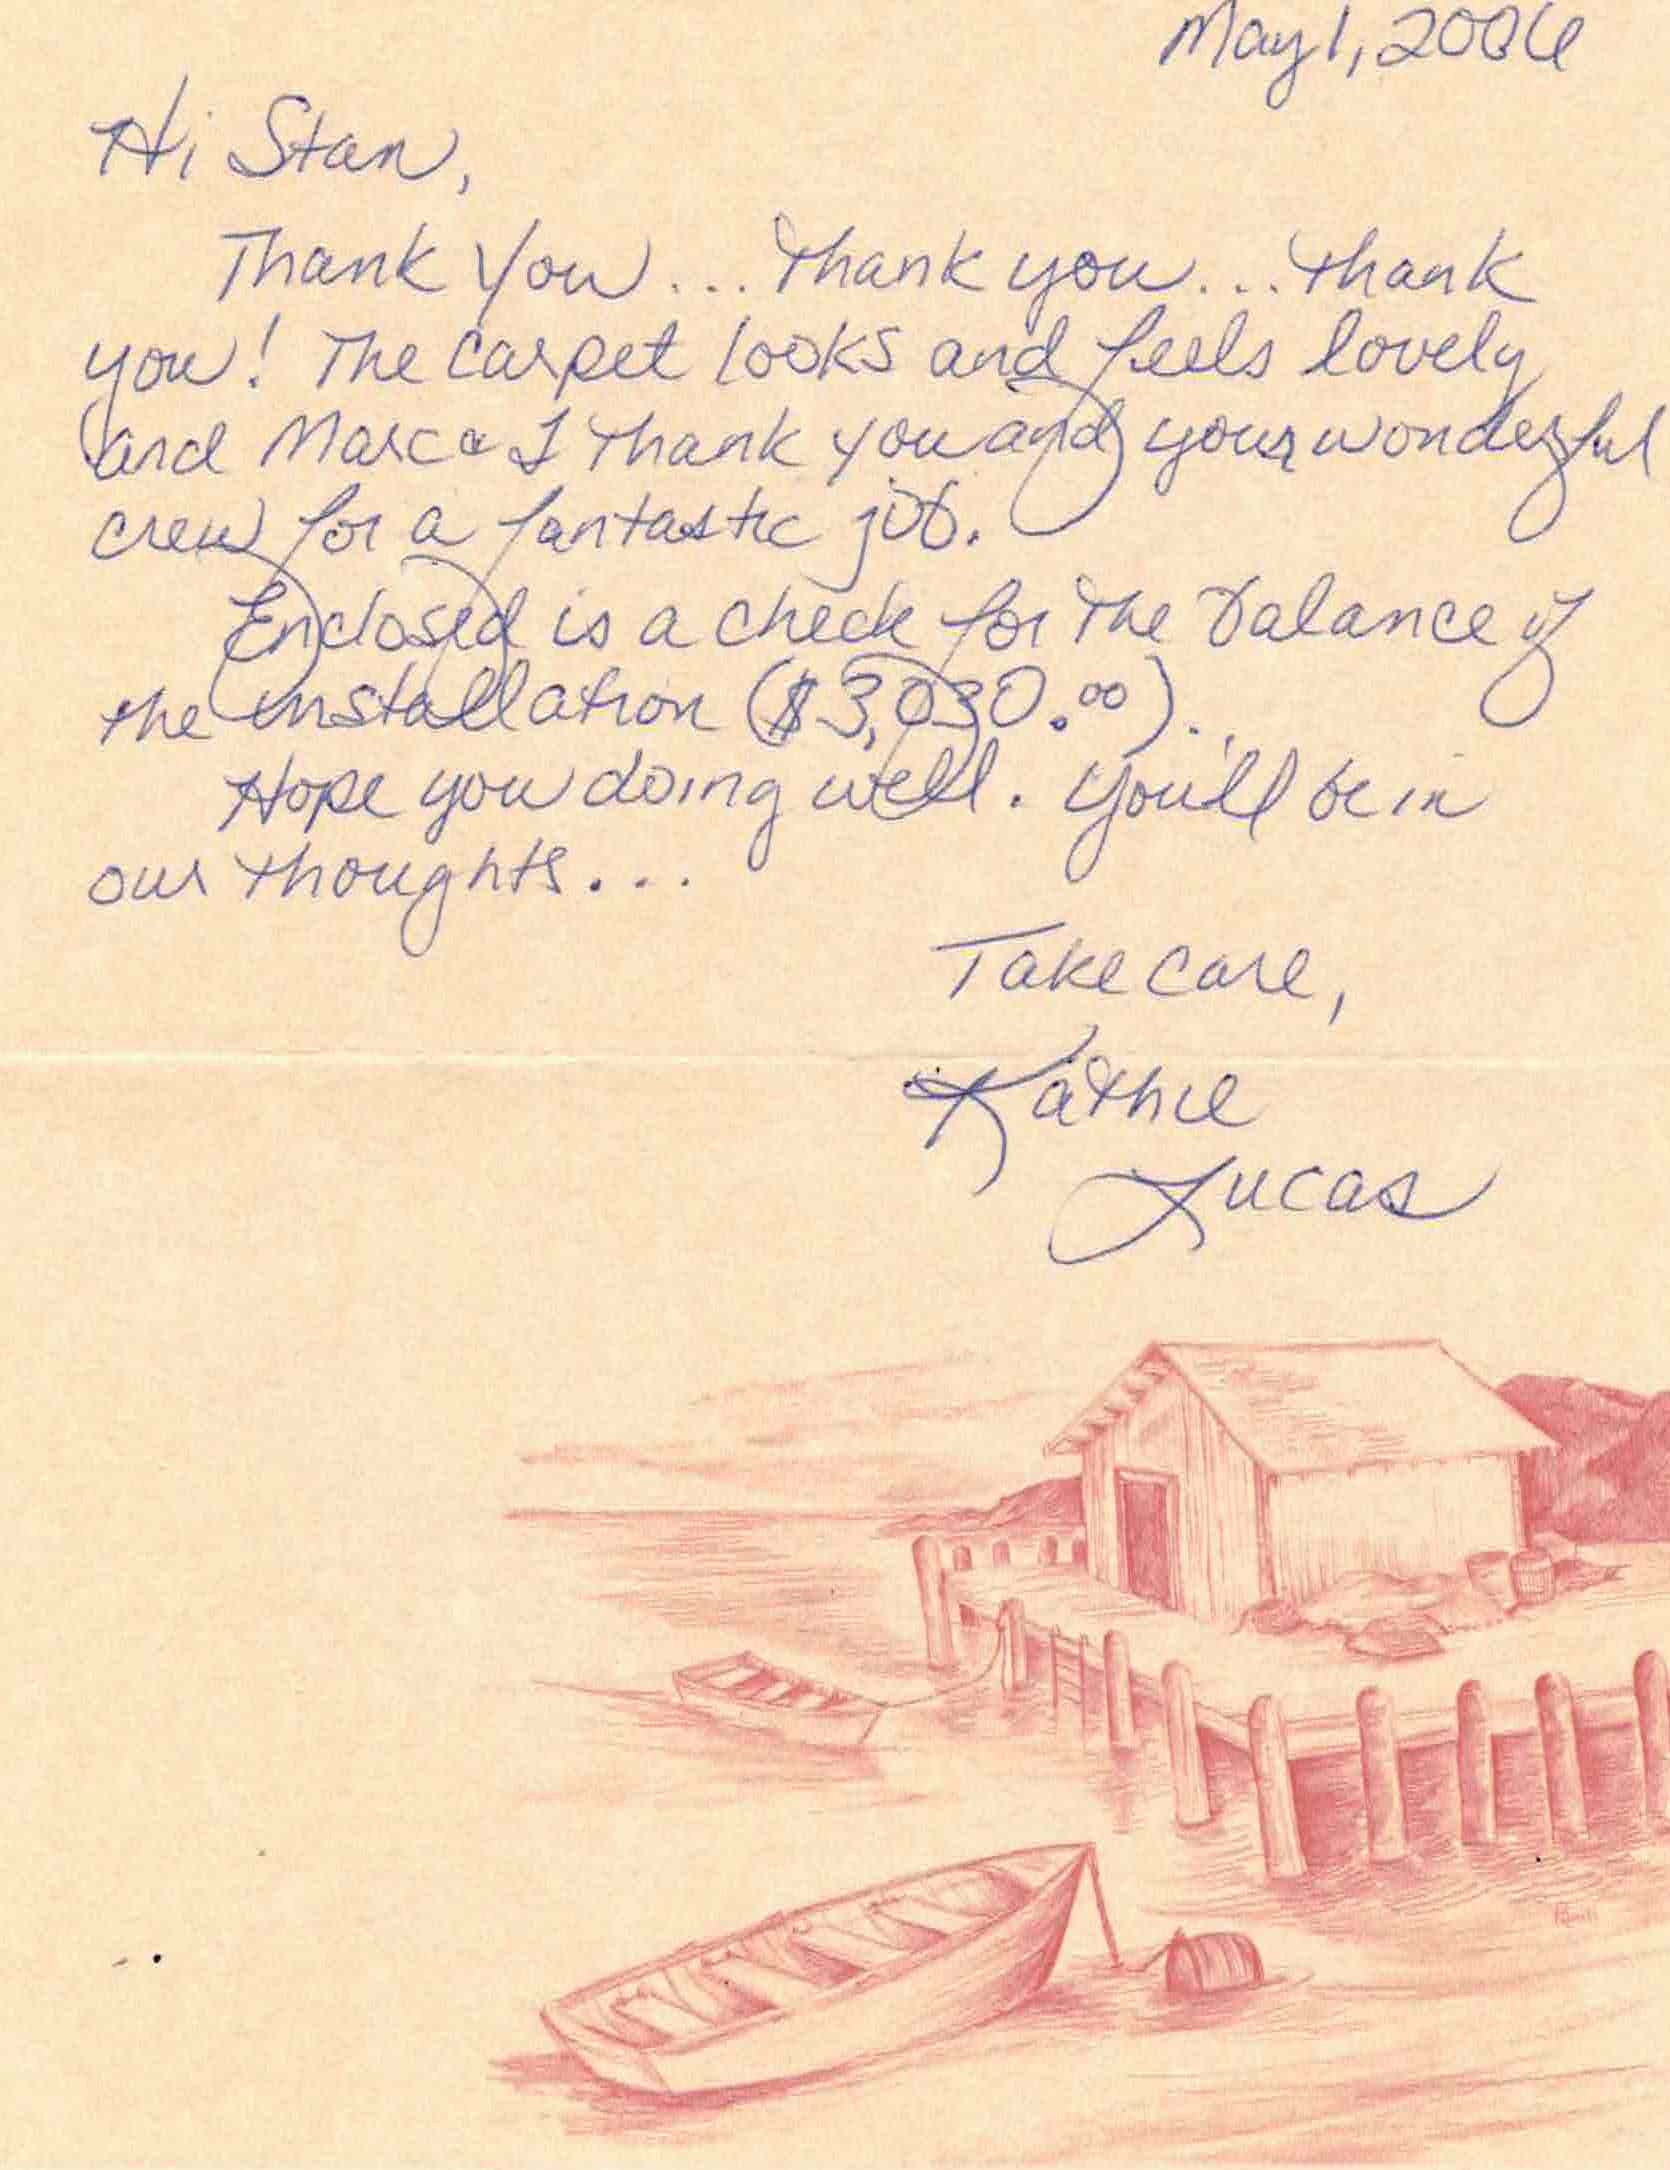 May 1, 2006
Hi Stan,
Thank You... thank you... thank
you! The carpet looks and feels lovely
and Marc & I thank you and your wonderful
crew for a fantastic job.
Enclosed is a check for the balance of
the installation ($3,030.00).
Hope you doing well. You'll be in
our thoughts...
Take care,
Kathie
Lucas